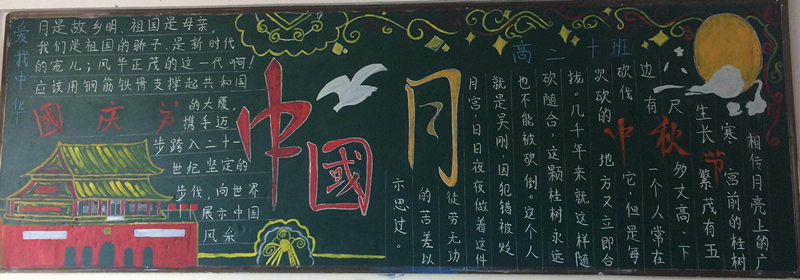 爱我中华
月是故乡明,祖国是母亲。
我们是祖国的骄子,是新时代
的宠儿;风华正茂的这一代啊!
应该用钢筋铁骨支撑起共和国
的大厦。
携手迈
步跨入二十一
世纪坚定的
步伐,向世界
展示中国
风采
國庆节
中國
月
高二十班
中秋节
相传月亮上的广
寒宫前的桂树
生长繁茂有五
尺多丈高,下
边有一个人常在
砍伐它,但是每
次砍的地方又立即合
拢。几千年来就这样随
砍随合,这颗桂树永远
也不能被砍倒。这个人
就是吴刚,因犯错被贬
月宫,日日夜夜做着这件
徒劳无功
的苦差以
示思过。